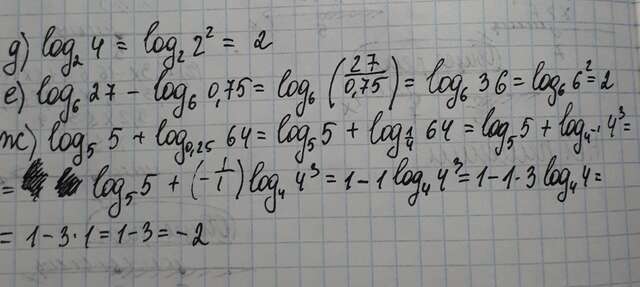 д) log₂ 4 = log₂ 2² = 2
е) log₆ 27 - log₆ 0,75 = log₆ (27/0,75) = log₆ 36 = log₆ 6² = 2
ж) log₅ 5 + log₀,₂₅ 64 = log₅ 5 + log₁/₄ 64 = log₅ 5 + log₄⁻¹ 4³ =
= log₅ 5 + (-1/1) log₄ 4³ = 1 - 1 log₄ 4³ = 1 - 1 · 3 log₄ 4 =
= 1 - 3 · 1 = 1 - 3 = -2